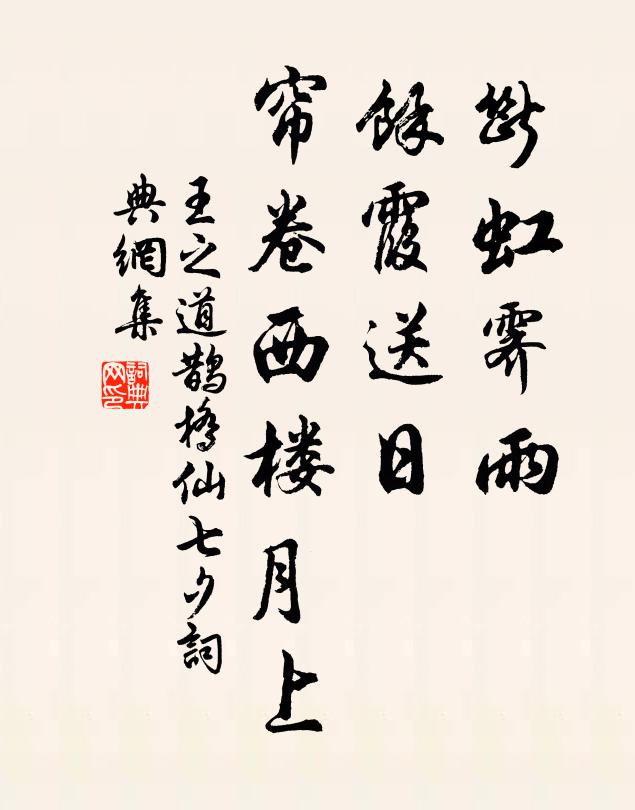 斷虹霽雨
餘霞送日
帘卷西楼月上
王之道鵲橋仙七夕詞
典網集
詞典
网印